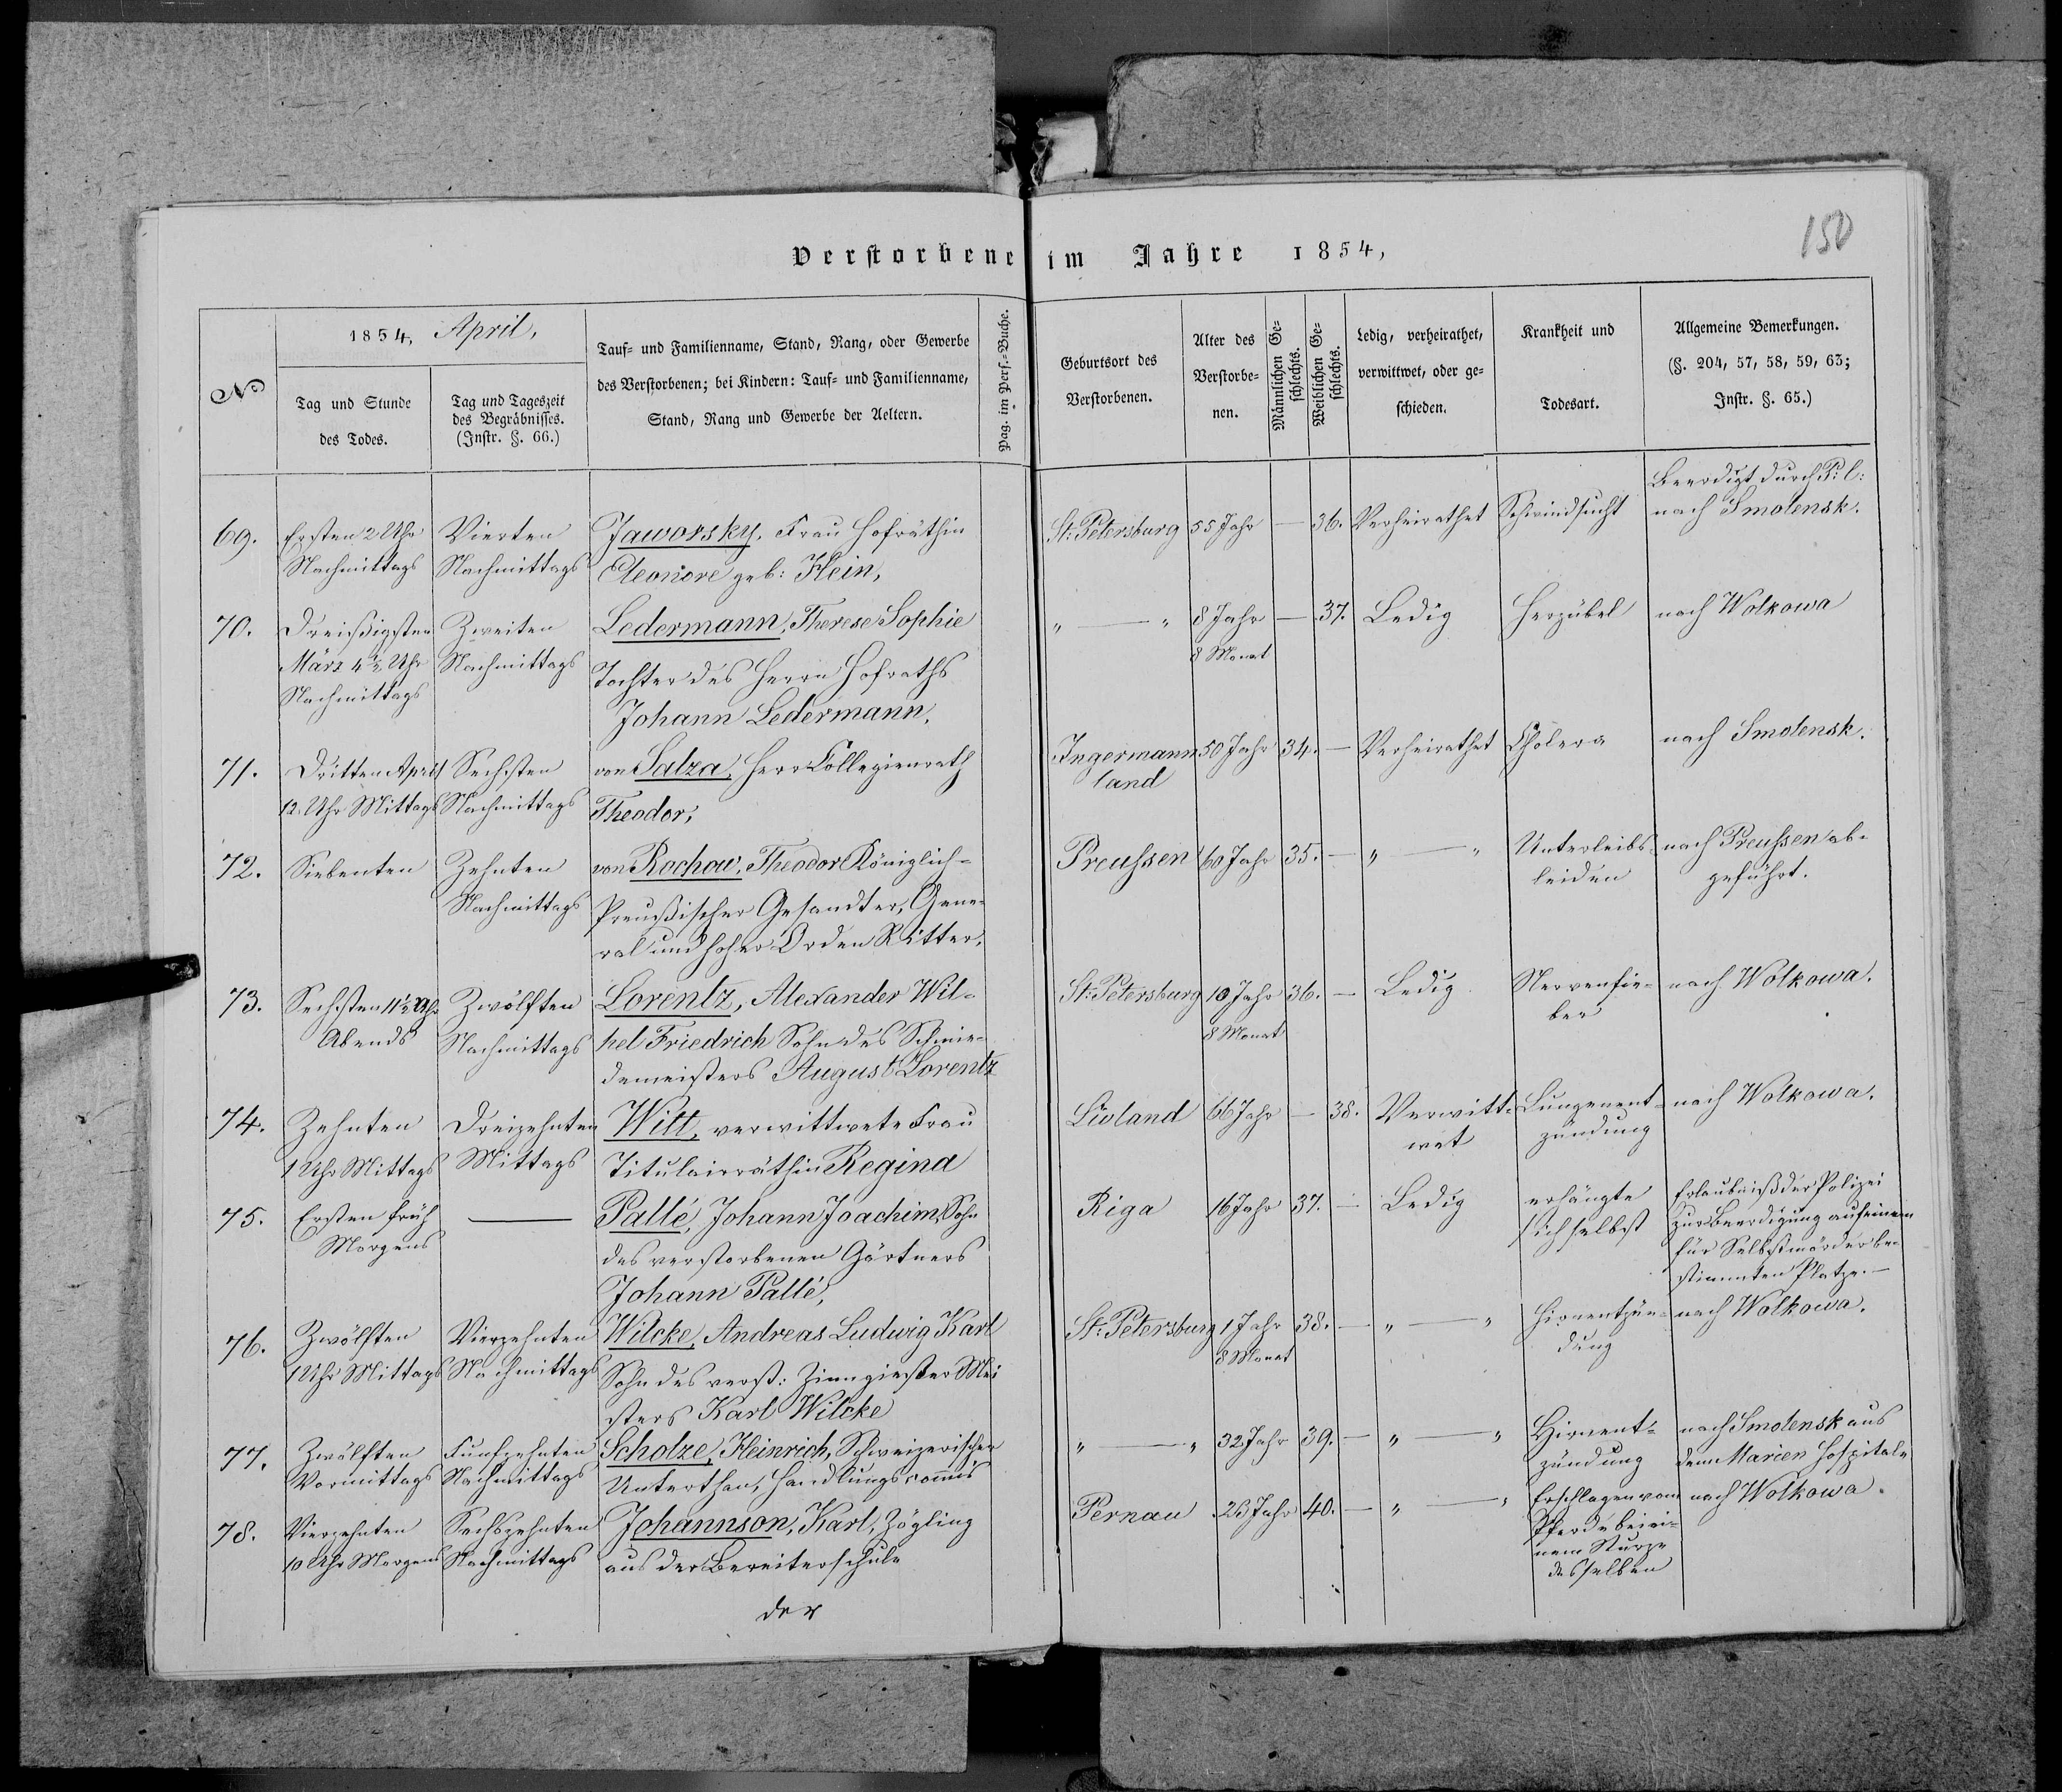 150
Verstorbene im Jahre 1854,
№
1854, April,
Tag und Stunde
des Todes.
Tag und Tageszeit
des Begräbnisses.
(Instr. §. 66.)
Tauf- und Familienname, Stand, Rang, oder Gewerbe
des Verstorbenen; bei Kindern: Tauf- und Familienname,
Stand, Rang und Gewerbe der Aeltern.
Pag. im Pers.-Buche.
Geburtsort des
Verstorbenen.
Alter des
Verstorbe-
nen.
Männlichen Ge-
schlechts.
Weiblichen Ge-
schlechts.
Ledig, verheirathet,
verwittwet, oder ge-
schieden.
Krankheit und
Todesart.
Allgemeine Bemerkungen.
(§. 204, 57, 58, 59, 63;
Instr. §. 65.)
Beerdigt durch P: l:
69. Ersten 2 Uhr Vierten Jaworsky, Frau Hofräthin St: Petersburg 55 Jahr — 36. Verheirathet Schwindsucht nach Smolensk.
Nachmittags Nachmittags Eleonore geb: Hein,
70. Dreißigsten Zweiten Ledermann, Therese Sophie „ — „ 8 Jahr — 37. Ledig Herzübel nach Wolkowa
März 4½ Uhr Nachmittags Tochter des Herrn Hofraths 8 Monat
Nachmittags Johann Ledermann.
71. Dritten April Sechsten von Salza, Herr Collegienrath Ingermann 50 Jahr 34. — Verheirathet Cholera nach Smolensk.
12. Uhr Mittags Nachmittags Theodor, land
72. Siebenten Zehnten von Rochow, Theodor Königlich- Preussen 60 Jahr 35. — „ — „ Unterleibs- nach Preussen ab-
Nachmittags Preußischer Gesandter, Gene- leiden geführt.
ral und hoher Orden Ritter,
73. Sechsten 11½ Uhr Zwölften Lorentz, Alexander Wil- St: Petersburg 10 Jahr 36. — Ledig Nervenfie- nach Wolkowa.
Abends Nachmittags hel Friedrich Sohn des Schmie- 8 Monat ber
demeisters August Lorentz
74. Zehnten Dreizehnten Witt, verwittwete Frau Livland 66 Jahr — 38. Verwitt- Lungenent- nach Wolkowa.
1 Uhr Mittags Mittags Titulairräthin Regina wet zündung
75. Ersten früh — Pallé, Johann Joachim, Sohn Riga 16 Jahr 37. — Ledig erhängte Erlaubniß der Polizei
Morgens des verstorbenen Gärtners sich selbst zur Beerdigung auf einem
Johann Pallé, für Selbstmörder be-
stimmten Platze. —
76. Zwölften Vierzehnten Wilcke, Andreas Ludwig Karl St: Petersburg 1 Jahr 38. — „ — „ Hirnentzün- nach Wolkowa.
1 Uhr Mittags Nachmittags Sohn des verst: Zinngießer Mei 8 Monat dung
sters Karl Wilcke
77. Zwölften Funfzehnten Scholze, Heinrich, Schweizerischer „ — „ 32 Jahr 39. — „ — „ Hirnent- nach Smolensk aus
Vormittags Nachmittags Unterthan, Handlungscommis zündung dem Marien Hospitale
78. Vierzehnten Sechszehnten Johannson, Karl, Zögling Pernau 23 Jahr 40. — „ — „ Erschlagen vom nach Wolkowa.
10 Uhr Morgens Nachmittags aus der Bereiterschule Pferde bei ei-
nem Sturze
desselben
der